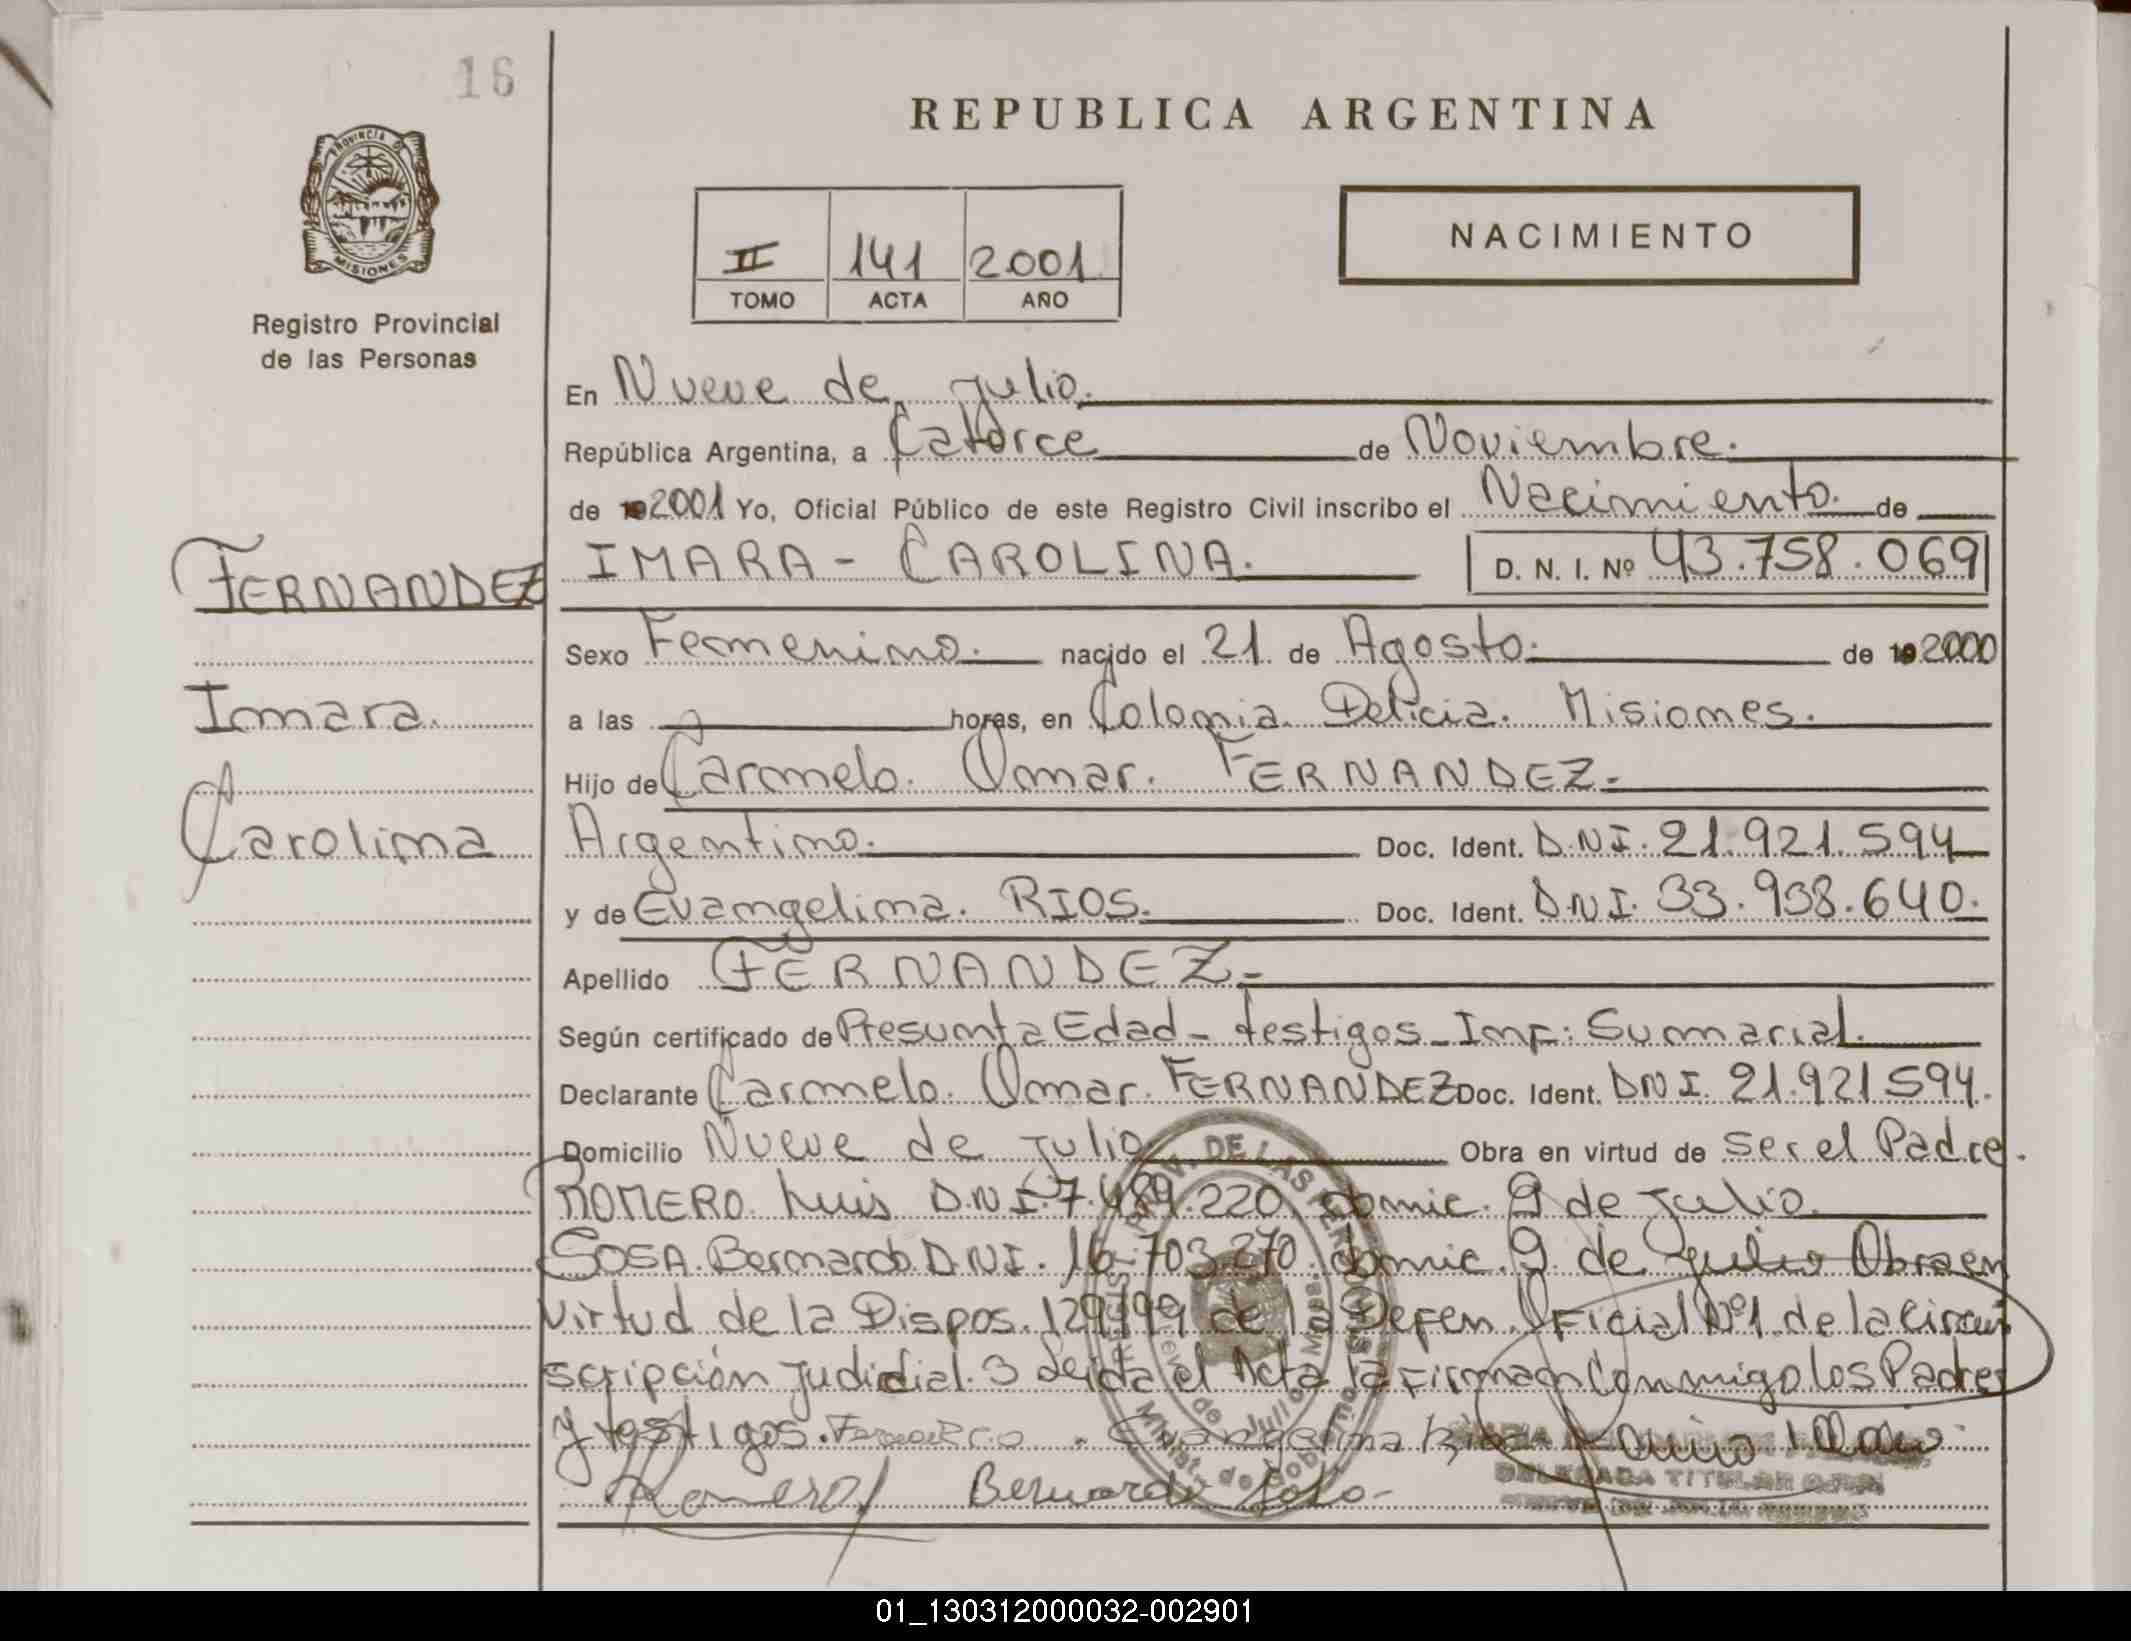 16
REPUBLICA ARGENTINA
PROVINCIA DE
MISIONES
Registro Provincial
de las Personas
NACIMIENTO
II 141 2001
TOMO ACTA AÑO
En Nueve de julio.
República Argentina, a Catorce de Noviembre.
de 19 2001 Yo, Oficial Público de este Registro Civil inscribo el Nacimiento. de
FERNANDEZ
Imara.
Carolina
IMARA - CAROLINA. D. N. I. Nº 43.758.069
Sexo Femenino. nacido el 21 de Agosto. de 19 2000
a las horas, en Colonia Delicia. Misiones.
Hijo de Carmelo. Omar. FERNANDEZ.
Argentino. Doc. Ident. D.N.I. 21.921.594
y de Evangelina. RIOS. Doc. Ident. D.N.I. 33.938.640.
Apellido FERNANDEZ.
Según certificado de Presunta Edad - testigos - Inf: Sumarial.
Declarante Carmelo. Omar. FERNANDEZ Doc. Ident. DNI. 21.921.594.
Domicilio Nueve de julio Obra en virtud de ser el Padre.
ROMERO Luis D.N.I. 7.489.220 domic. 9 de julio.
SOSA. Bernardo. D.NI. 16.703.270. domic. 9 de julio Obra en
virtud de la Dispos. 129/99 de la Defen. Oficial Nº1. de la Circun
scripción judidial. 3 Leida el Acta la Firman Conmigo los Padres
y testigos. Evangelina Rios
Romero Bernardo
DELEGADA TITULAR
01_130312000032-002901